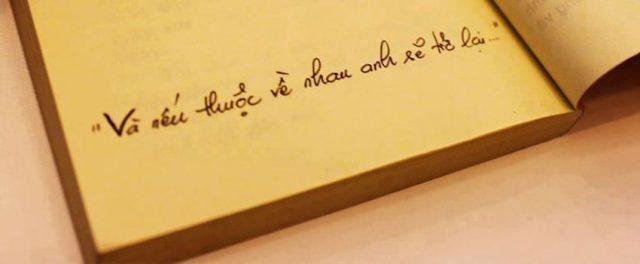 "Và nếu thuộc về nhau anh sẽ trở lại..."